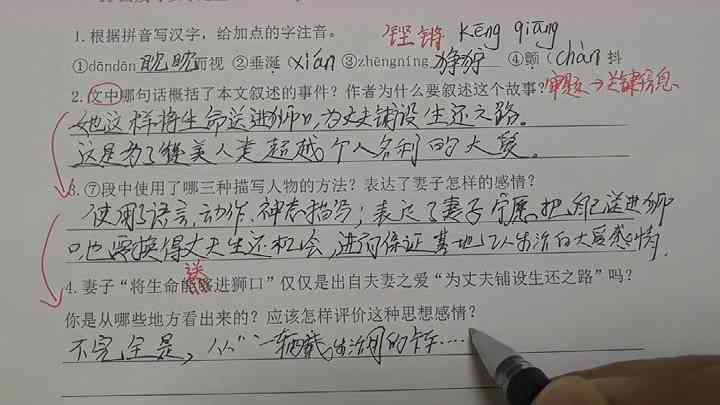 铿锵 kēng qiāng
1.根据拼音写汉字,给加点的字注音。
①dāndān眈眈而视 ②垂涎(xián ③zhēngníng狰狞 ④颤(chàn 抖
2.文中哪句话概括了本文叙述的事件?作者为什么要叙述这个故事?审题→关键信息
她这样将生命送进狮口,为丈夫铺设生还之路。
这是为了赞美人类超越个人名利的大爱。
3.⑦段中使用了哪三种描写人物的方法?表达了妻子怎样的感情?
使用了语言,动作,神态描写;表达了妻子宁愿把自己送进狮
口,也要换得丈夫生还机会,进而保证基地工人生活的大爱感情.
4.妻子“将生命送进狮口”仅仅是出自夫妻之爱“为丈夫铺设生还之路”吗?
你是从哪些地方看出来的?应该怎样评价这种思想感情?
不完全是,从“一辆载生活用的卡车……